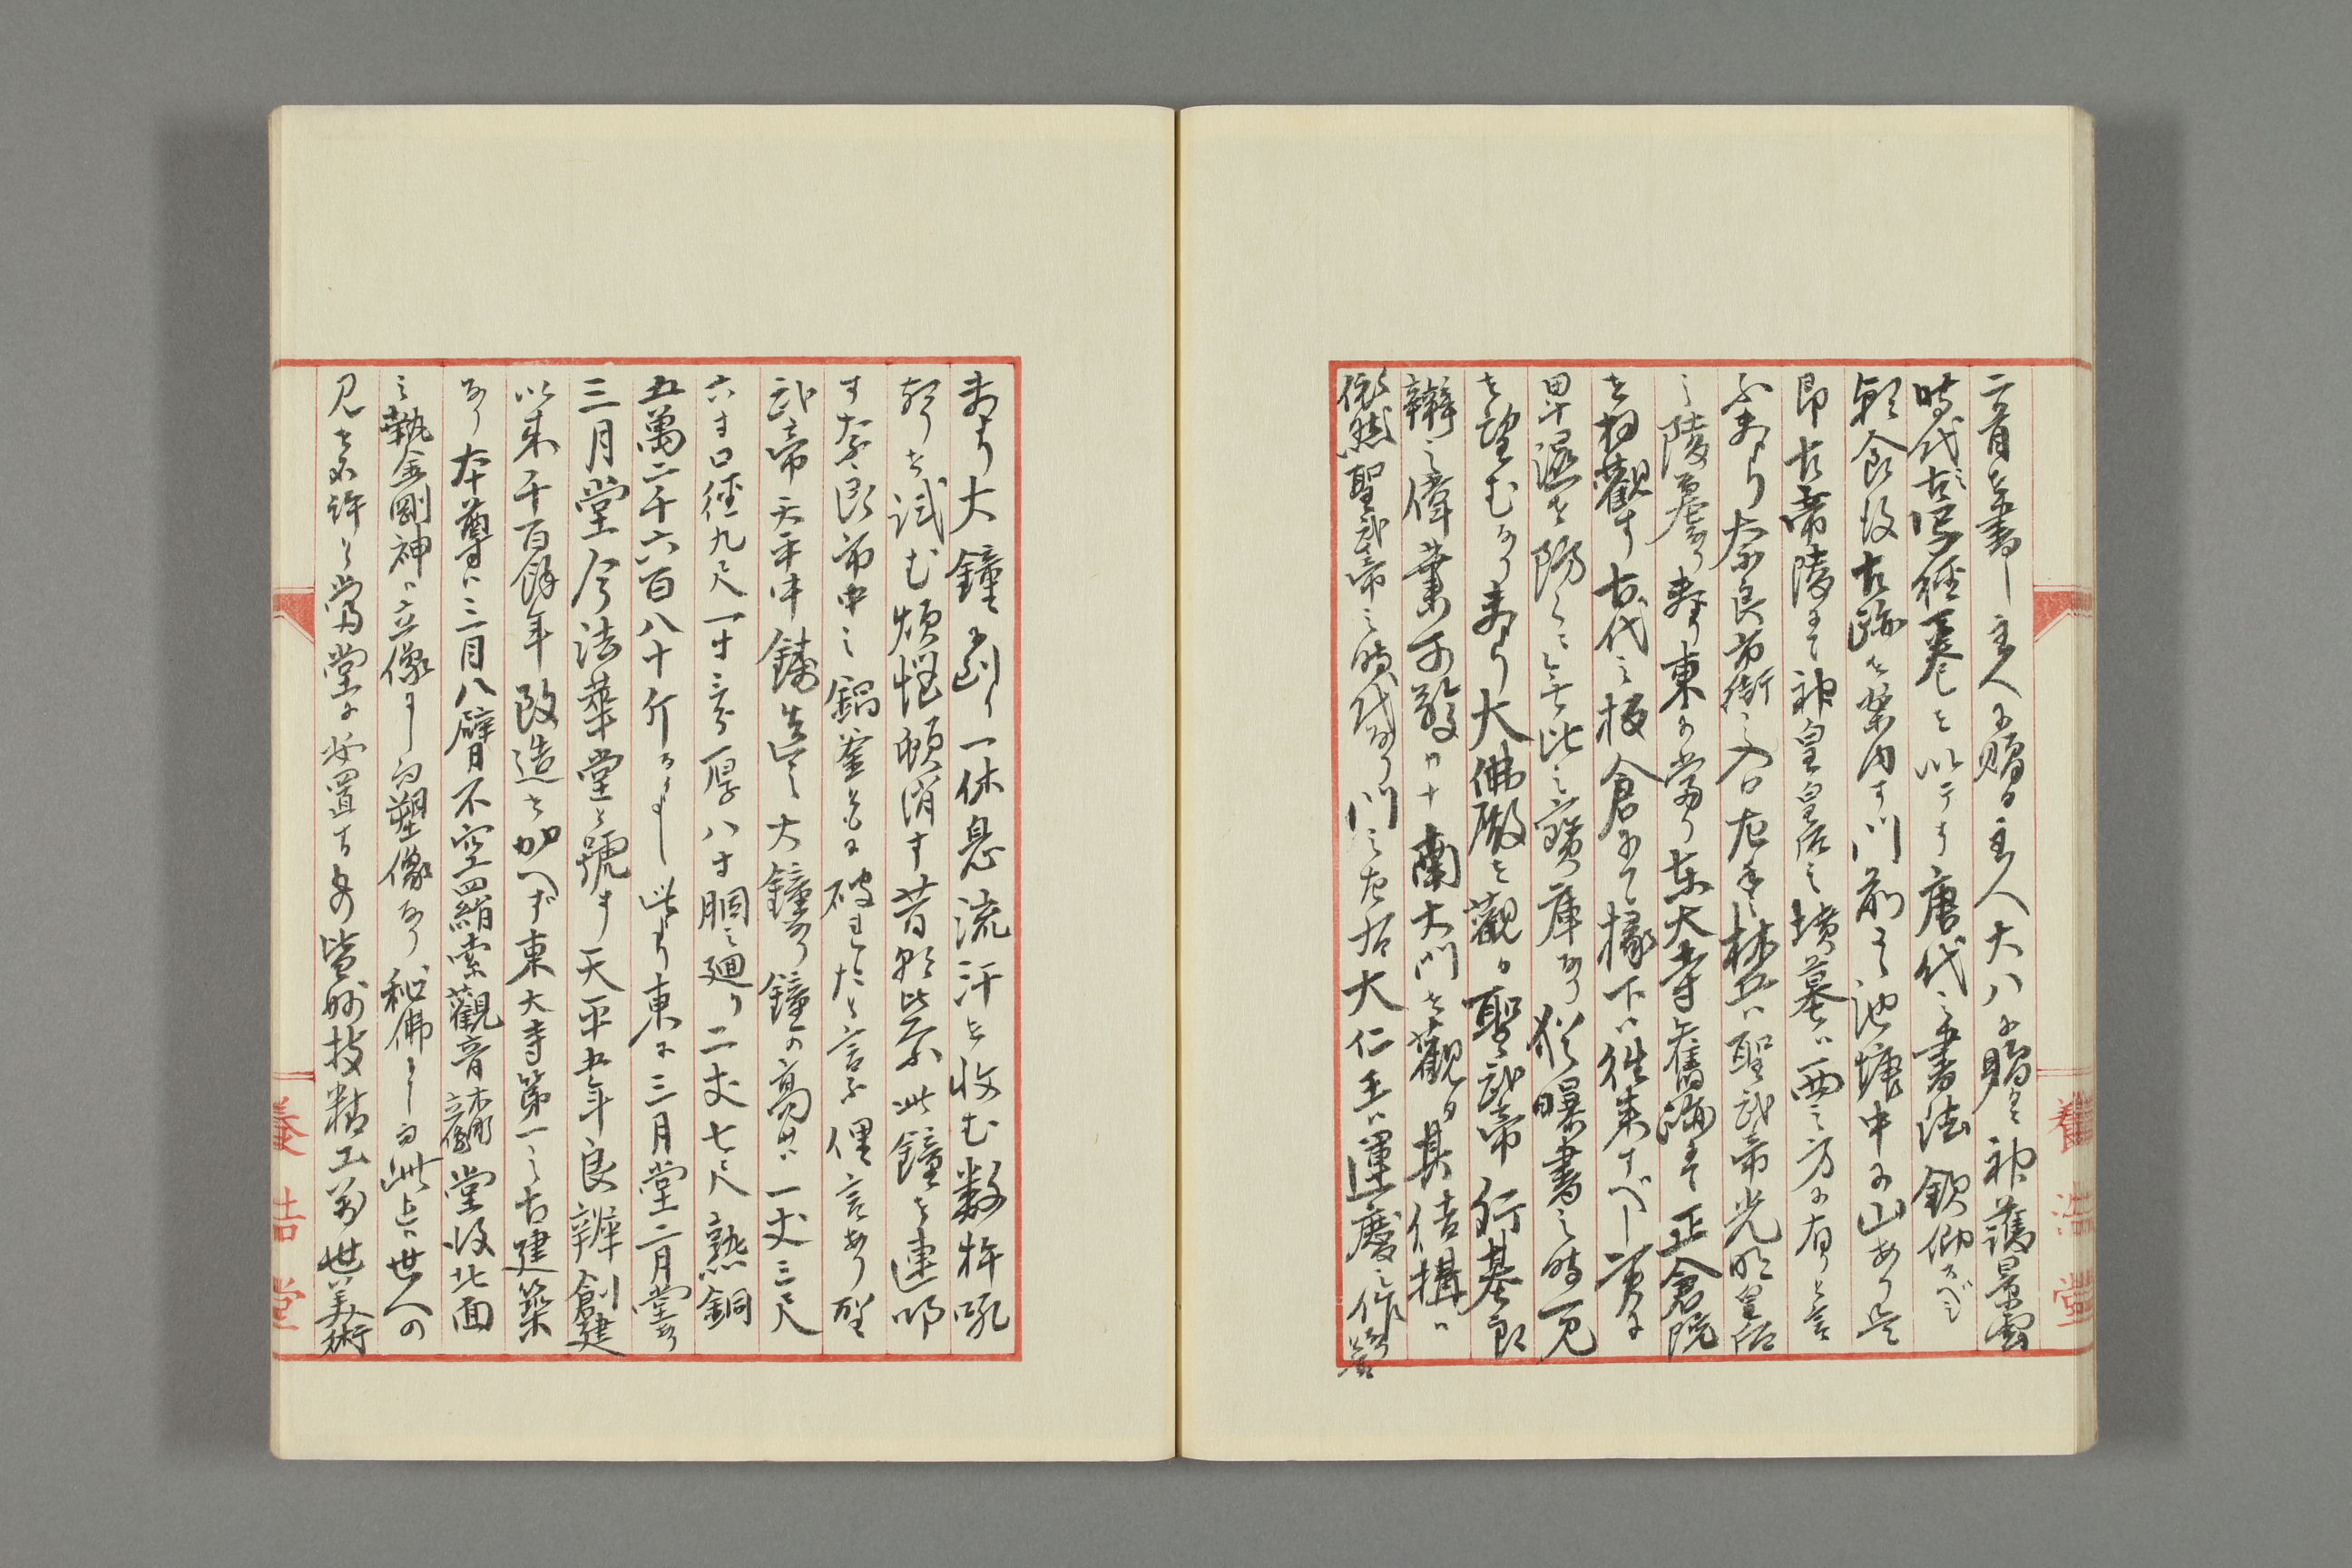 二首を書し主人に贈る主人大八に贈るに神護景雲
時代之古写経一巻を以てす唐代之書法欽仰すべし
朝食後古跡を案内す門前之池塘中に山あり是
即古帝陵にて神皇皇后之墳墓は西之方に有りと言
ふより奈良市街之入口左手之林丘は聖武帝光明皇后
之陵墓なり東に当り東大寺旧蔵之正倉院
を拝観す古代之板倉にて椽下は往来すべし実に
卑湿を防ぐに無比之宝庫なり猶曝書之時一見
を望むなり夫より大佛殿を觀る聖武帝行基良
辨之偉業可敬〻南大門を觀る其結構は
依然聖武帝之時代なり門之左右大仁王は運慶之作
夫より大鐘に到り一休息流汗を收む数杵吼
聲を試む煩悩頓消す昔 此鐘を連叩
す奈良市中之鍋釜 に破れたと言ふ俚言あり聖
武帝天平中鋳造之大鐘なり鐘の高サは一丈三尺
六寸口徑九尺一寸三分厚八寸胴之廻り二丈七尺熟銅
五萬二千六百八十斤なりし此より東に三月堂二月堂あり
三月堂今法華堂と號す天平五年良辨創建
以来千百餘年改造を加へず東大寺第一之古建築
なり本尊は三目八臂不空羂索觀音木彫立像堂後北面
之執金剛神は立像 塑像なり秘佛 世人の
見を不許と當堂に安置する者皆妙技精工万世美術
養浩堂
養浩堂